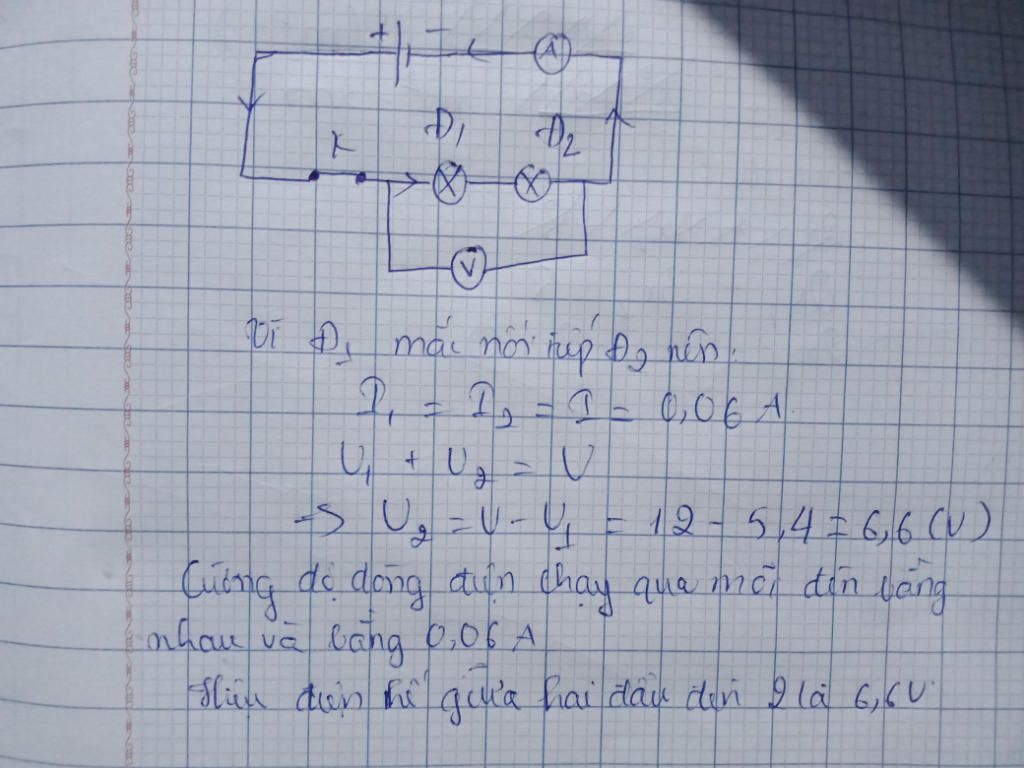 + -
A
K
Đ1
Đ2
X X
V
Vì Đ1 mắc nối tiếp Đ2 nên.
I1 = I2 = I = 0,06 A.
U1 + U2 = U
=> U2 = U - U1 = 12 - 5,4 = 6,6 (V)
Cường độ dòng điện chạy qua mỗi đèn bằng
nhau và bằng 0,06 A
Hiệu điện thế giữa hai đầu đèn 2 là 6,6V